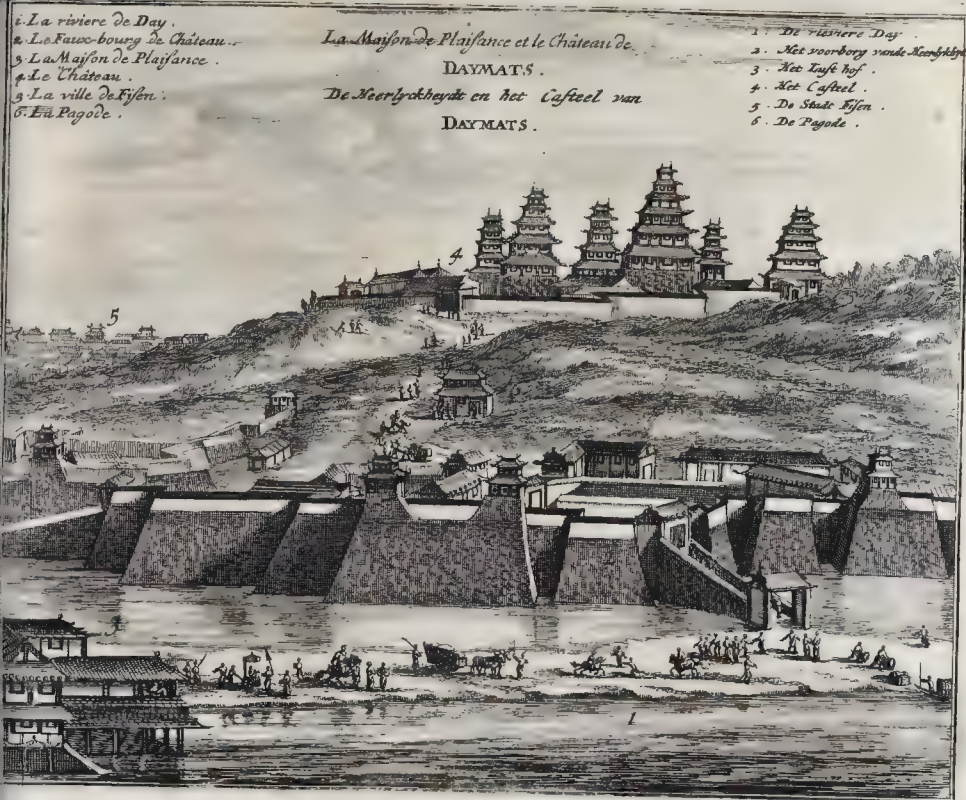 1. La riviere de Day.
2. Le Faux-bourg de Château.
3. La Maison de Plaisance.
4. Le Château.
5. La ville de Fisen.
6. La Pagode.
La Maison de Plaisance et le Château de
DAYMATS.
De Heerlyckheydt en het Casteel van
DAYMATS.
1. De rieviere Day.
2. Het voorborg vande
3. Het Lust hof.
4. Het Casteel.
5. De Stadt Fisen.
6. De Pagode.
4
5
1